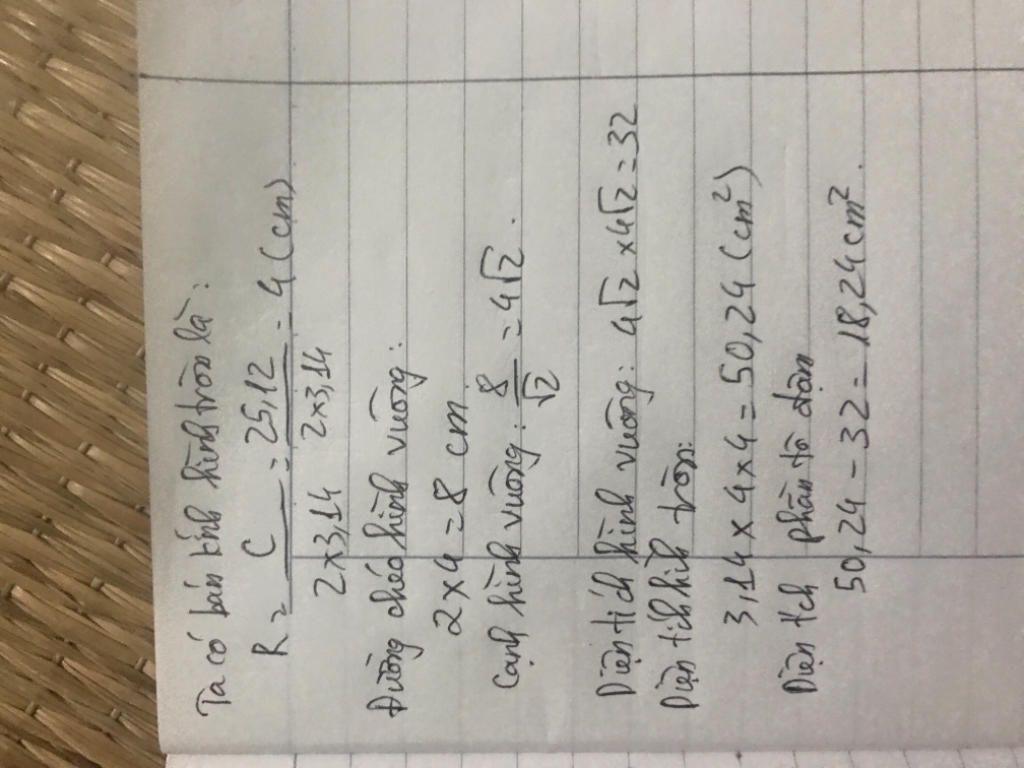 Ta có bán kính hình tròn là:
R = C / 2x3,14 = 25,12 / 2x3,14 = 4 (cm)
Đường chéo hình vuông:
2 x 4 = 8 cm
Cạnh hình vuông: 8/√2 = 4√2.
Diện tích hình vuông: 4√2 x 4√2 = 32
Diện tíh hìh tròn:
3,14 x 4 x 4 = 50,24 (cm²)
Diện tch phần tô đậm
50,24 - 32 = 18,24 cm².